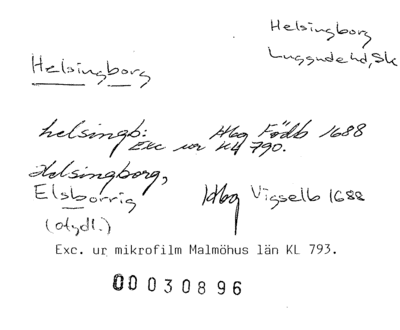 Helsingborg
Luggude hd, Sk
Helsingborg
helsingb: Hbg Födb 1688
Exc ur KH 790.
Helsingborg,
Elsborrig Hbg Vigselb 1688
(otydl.)
Exc. ur mikrofilm Malmöhus län KL 793.
00030896